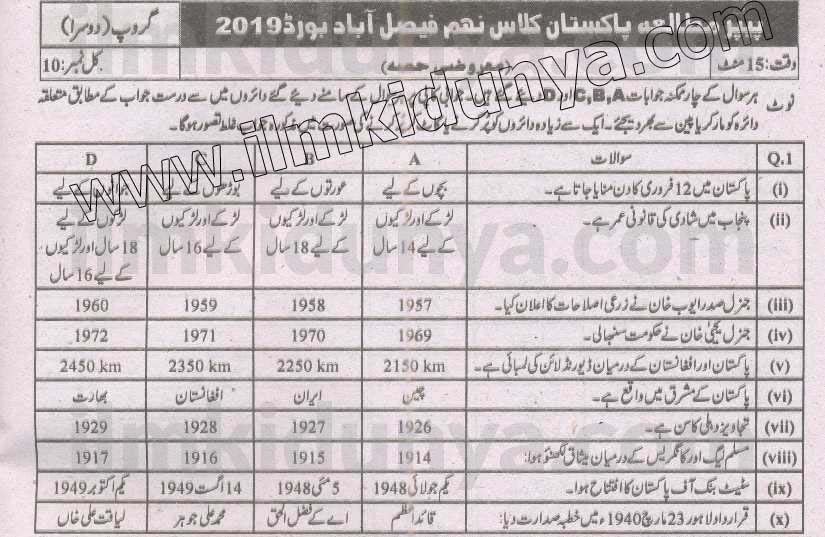 پیپر مطالعہ پاکستان کلاس نہم فیصل آباد بورڈ 2019 گروپ (دوسرا)
وقت: 15 منٹ (معروضی حصہ) کل نمبر: 10
نوٹ ہر سوال کے چار ممکنہ جوابات C,B,A اور D دیئے گئے ہیں۔ جوابی کاپی پر ہر سوال کے سامنے دیئے گئے دائروں میں سے درست جواب کے مطابق متعلقہ
دائرہ کو مارکر یا پین سے بھر دیجئے۔ ایک سے زیادہ دائروں کو پُر کرنے یا کاٹ کر پُر کرنے کی صورت میں مذکورہ جواب غلط تصور ہوگا۔
Q.1 سوالات A B C D
(i) پاکستان میں 12 فروری کا دن منایا جاتا ہے۔ بچوں کے لیے عورتوں کے لیے بوڑھوں کے لیے کے لیے
(ii) پنجاب میں شادی کی قانونی عمر ہے۔ لڑکے اور لڑکیوں کے لیے 14 سال لڑکے اور لڑکیوں کے لیے 18 سال لڑکے اور لڑکیوں کے لیے 16 سال لڑکوں کے لیے 18 سال اور لڑکیوں کے لیے 16 سال
(iii) جنرل صدر ایوب خان نے زرعی اصلاحات کا اعلان کیا۔ 1957 1958 1959 1960
(iv) جنرل یحییٰ خان نے حکومت سنبھالی۔ 1969 1970 1971 1972
(v) پاکستان اور افغانستان کے درمیان ڈیورنڈ لائن کی لمبائی ہے۔ 2150 km 2250 km 2350 km 2450 km
(vi) پاکستان کے مشرق میں واقع ہے۔ چین ایران افغانستان بھارت
(vii) تجاویز دہلی کا سن ہے۔ 1926 1927 1928 1929
(viii) مسلم لیگ اور کانگریس کے درمیان میثاق لکھنؤ ہوا: 1914 1915 1916 1917
(ix) سٹیٹ بنک آف پاکستان کا افتتاح ہوا۔ یکم جولائی 1948 5 مئی 1948 14 اگست 1949 یکم اکتوبر 1949
(x) قرارداد لاہور 23 مارچ 1940ء میں خطبہ صدارت دیا: قائد اعظم اے کے فضل الحق محمد علی جوہر لیاقت علی خاں
www.ilmkidunya.com
ilmkidunya.com
ilmkidunya.com
ilmkidunya.com